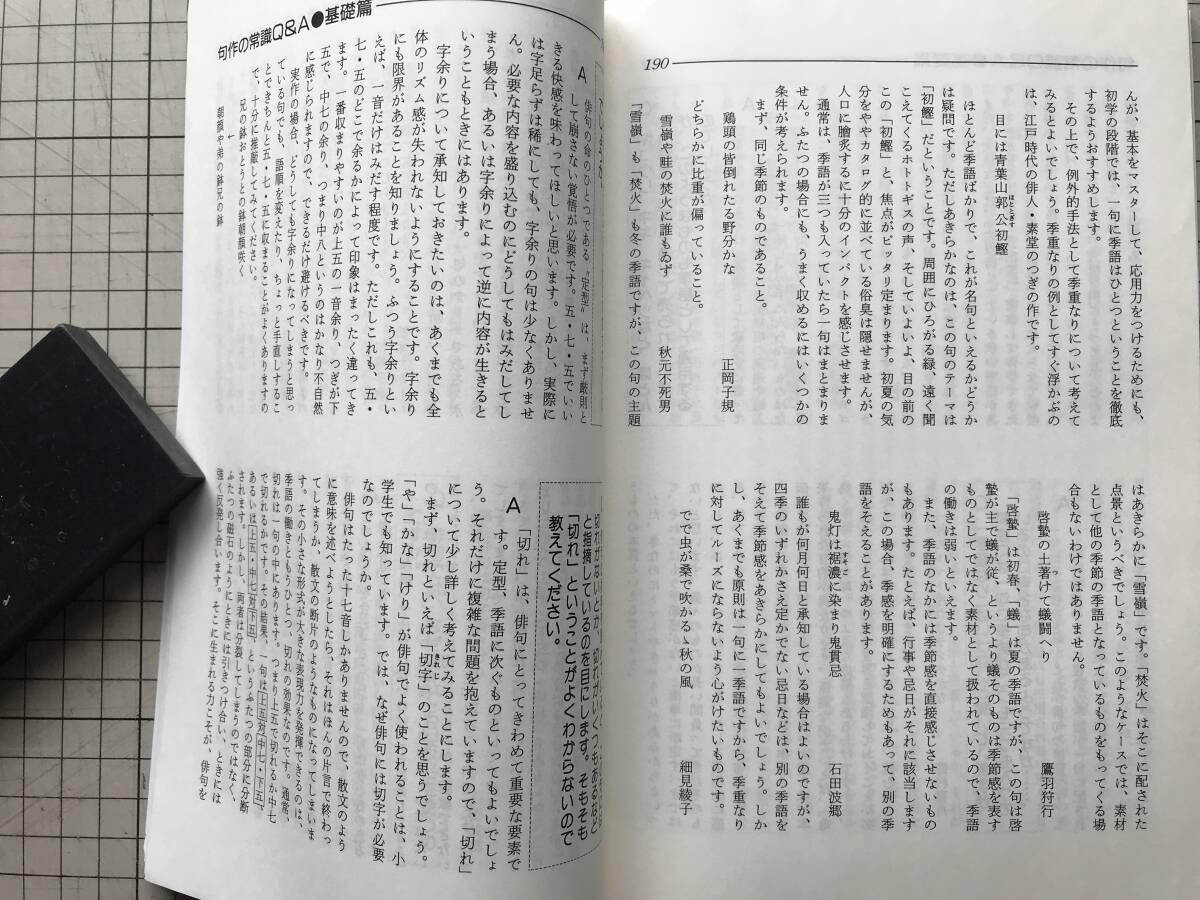 190
んが、基本をマスターして、応用力をつけるためにも、
初学の段階では、一句に季語はひとつということを徹底
するようおすすめします。
その上で、例外的手法として季重なりについて考えて
みるとよいでしょう。季重なりの例としてすぐ浮かぶの
は、江戸時代の俳人・素堂のつぎの作です。
目には青葉山郭公初鰹
ほととぎす
ほとんど季語ばかりで、これが名句といえるかどうか
は疑問です。ただしあきらかなのは、この句のテーマは
「初鰹」だということです。周囲にひろがる緑、遠く聞
こえてくるホトトギスの声、そしていよいよ、目の前の
この「初鰹」と、焦点がピッタリ定まります。初夏の気
分をややカタログ的に並べている俗臭は隠せませんが、
人口に膾炙するに十分のインパクトを感じさせます。
通常は、季語が三つも入っていたら一句はまとまりま
せん。ふたつの場合にも、うまく収めるにはいくつかの
条件が考えられます。
まず、同じ季節のものであること。
鶏頭の皆倒れたる野分かな 正岡子規
どちらかに比重が偏っていること。
雪嶺や畦の焚火に誰もゐず 秋元不死男
「雪嶺」も「焚火」も冬の季語ですが、この句の主題
はあきらかに「雪嶺」です。「焚火」はそこに配された
点景というべきでしょう。このようなケースでは、素材
として他の季節の季語となっているものをもってくる場
合もないわけではありません。
啓蟄の土著けて蟻闘へり 鷹羽狩行
つ
「啓蟄」は初春、「蟻」は夏の季語ですが、この句は啓
蟄が主で蟻が従、というより蟻そのものは季節感を表す
ものとしてではなく素材として扱われているので、季語
の働きは弱いといえます。
また、季語のなかには季節感を直接感じさせないもの
もあります。たとえば、行事や忌日がそれに該当します
が、この場合、季感を明確にするためもあって、別の季
語をそえることがあります。
鬼灯は裾濃に染まり鬼貫忌 石田波郷
すそご
誰もが何月何日と承知している場合はよいのですが、
四季のいずれかさえ定かでない忌日などは、別の季語を
そえて季節感をあきらかにしてもよいでしょう。しか
し、あくまでも原則は一句に一季語ですから、季重なり
に対してルーズにならないよう心がけたいものです。
でで虫が桑で吹かるゝ秋の風 細見綾子
句作の常識Q&A●基礎篇
A 俳句の命のひとつである〝定型〟は、まず厳則と
して崩さない覚悟が必要です。五・七・五でいい
きる快感を味わってほしいと思います。しかし、実際に
は字足らずは稀にしても、字余りの句は少なくありませ
ん。必要な内容を盛り込むのにどうしてもはみだしてし
まう場合、あるいは字余りによって逆に内容が生きると
いうこともときにはあります。
字余りについて承知しておきたいのは、あくまでも全
体のリズム感が失われないようにすることです。字余り
にも限界があることを知りましょう。ふつう字余りとい
えば、一音だけはみだす程度です。ただしこれも、五・
七・五のどこで余るかによって印象はまったく違ってき
ます。一番収まりやすいのが上五の一音余り、つぎが下
五で、中七の余り、つまり中八というのはかなり不自然
に感じられますので、できるだけ避けるべきです。
実作の場合、どうしても字余りになってしまうと思っ
ている句でも、語順を変えたり、ちょっと手直しするこ
とできちんと五・七・五に収まることがよくありますの
で、十分に推敲してみてください。
兄の鉢おとうとの鉢朝顔咲く
↓
朝顔や弟の鉢兄の鉢
切れがないとか、切れがいくつもあるなど
と指摘しているのを目にします。そもそも
「切れ」ということがよくわからないので
教えてください。
A 「切れ」は、俳句にとってきわめて重要な要素で
す。定型、季語に次ぐものといってもよいでしょ
う。それだけに複雑な問題を抱えていますので、「切れ」
について少し詳しく考えてみることにします。
まず、切れといえば「切字」のことを思うでしょう。
きれじ
「や」「かな」「けり」が俳句でよく使われることは、小
学生でも知っています。では、なぜ俳句には切字が必要
なのでしょうか。
俳句はたった十七音しかありませんので、散文のよう
に意味を述べようとしたら、それはほんの片言で終わっ
てしまうか、散文の断片のようなものになってしまいま
す。その小さな形式が大きな表現力を発揮できるのは、
季語の働きともうひとつ、切れの効果なのです。通常、
切れは一句の中にあります。つまり上五で切れるか中七
で切れるかです。その結果、一句は上五対中七・下五、
あるいは上五・中七対下五、というふたつの部分に分断
されます。しかし、両者は分裂してしまうのではなく、
ふたつの磁石のようにときには引きつけ合い、ときには
強く反発し合います。そこに生まれる力こそが、俳句を